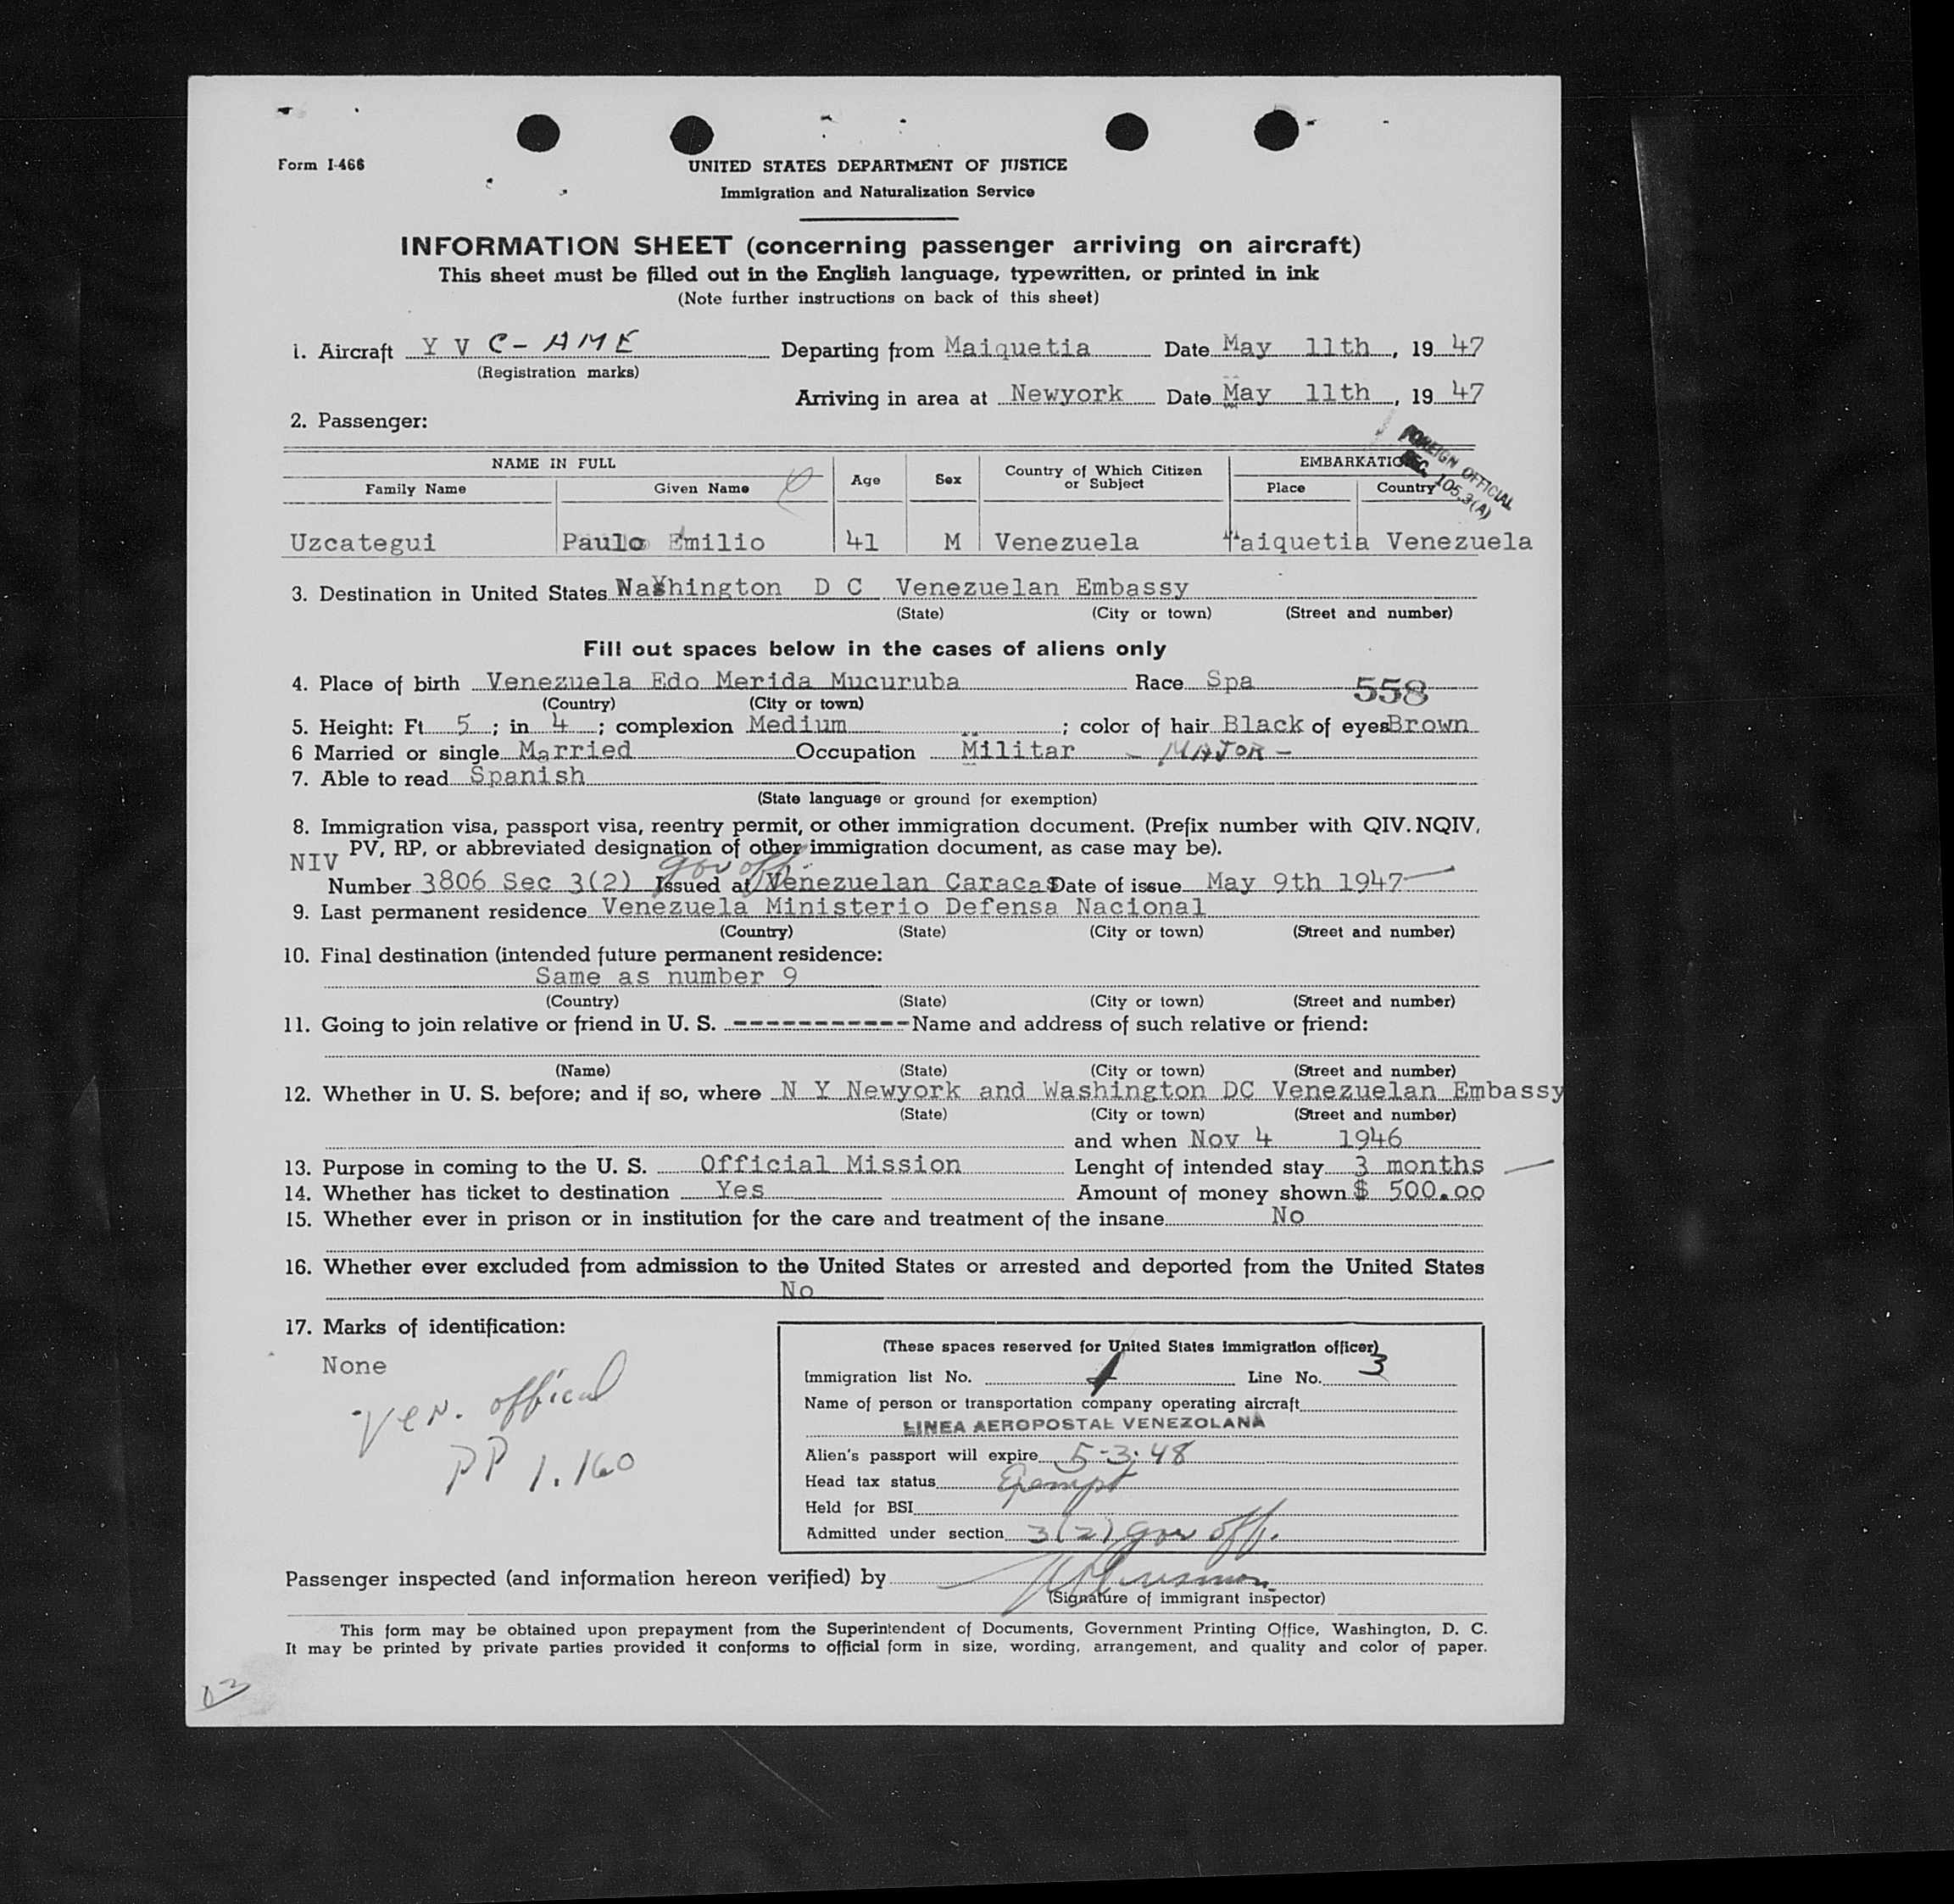 Form I-466
UNITED STATES DEPARTMENT OF JUSTICE
Immigration and Naturalization Service
INFORMATION SHEET (concerning passenger arriving on aircraft)
This sheet must be filled out in the English language, typewritten, or printed in ink
(Note further instructions on back of this sheet)
1. Aircraft Y V C- AME Departing from Maiquetia Date May 11th, 19 47
(Registration marks)
Arriving in area at Newyork Date May 11th, 19 47
2. Passenger:
FOREIGN OFFICIAL
SEC. 105.3(A)
NAME IN FULL Age Sex Country of Which Citizen or Subject EMBARKATION
Family Name Given Name Place Country
Uzcategui Paulo Emilio 41 M Venezuela Maiquetia Venezuela
3. Destination in United States Washington D C Venezuelan Embassy
(State) (City or town) (Street and number)
Fill out spaces below in the cases of aliens only
4. Place of birth Venezuela Edo Merida Mucuruba Race Spa 558
(Country) (City or town)
5. Height: Ft 5 ; in 4 ; complexion Medium ; color of hair Black of eyes Brown
6 Married or single Married Occupation Militar - MAJOR -
7. Able to read Spanish
(State language or ground for exemption)
8. Immigration visa, passport visa, reentry permit, or other immigration document. (Prefix number with QIV. NQIV,
PV, RP, or abbreviated designation of other immigration document, as case may be).
NIV gov off.
Number 3806 Sec 3(2) Issued at Venezuelan Caracas Date of issue May 9th 1947
9. Last permanent residence Venezuela Ministerio Defensa Nacional
(Country) (State) (City or town) (Street and number)
10. Final destination (intended future permanent residence:
Same as number 9
(Country) (State) (City or town) (Street and number)
11. Going to join relative or friend in U. S. ----------- Name and address of such relative or friend:
(Name) (State) (City or town) (Street and number)
12. Whether in U. S. before; and if so, where N Y Newyork and Washington DC Venezuelan Embassy
(State) (City or town) (Street and number)
and when Nov 4 1946
13. Purpose in coming to the U. S. Official Mission Lenght of intended stay 3 months
14. Whether has ticket to destination Yes Amount of money shown $ 500.00
15. Whether ever in prison or in institution for the care and treatment of the insane No
16. Whether ever excluded from admission to the United States or arrested and deported from the United States
No
17. Marks of identification:
None
Ven. offical
PP 1.160
(These spaces reserved for United States immigration officer)
Immigration list No. Line No. 3
Name of person or transportation company operating aircraft
LINEA AEROPOSTAL VENEZOLANA
Alien's passport will expire 5-3-48
Head tax status Exempt
Held for BSI
Admitted under section 3(2) gov off.
Passenger inspected (and information hereon verified) by
(Signature of immigrant inspector)
This form may be obtained upon prepayment from the Superintendent of Documents, Government Printing Office, Washington, D. C.
It may be printed by private parties provided it conforms to official form in size, wording, arrangement, and quality and color of paper.